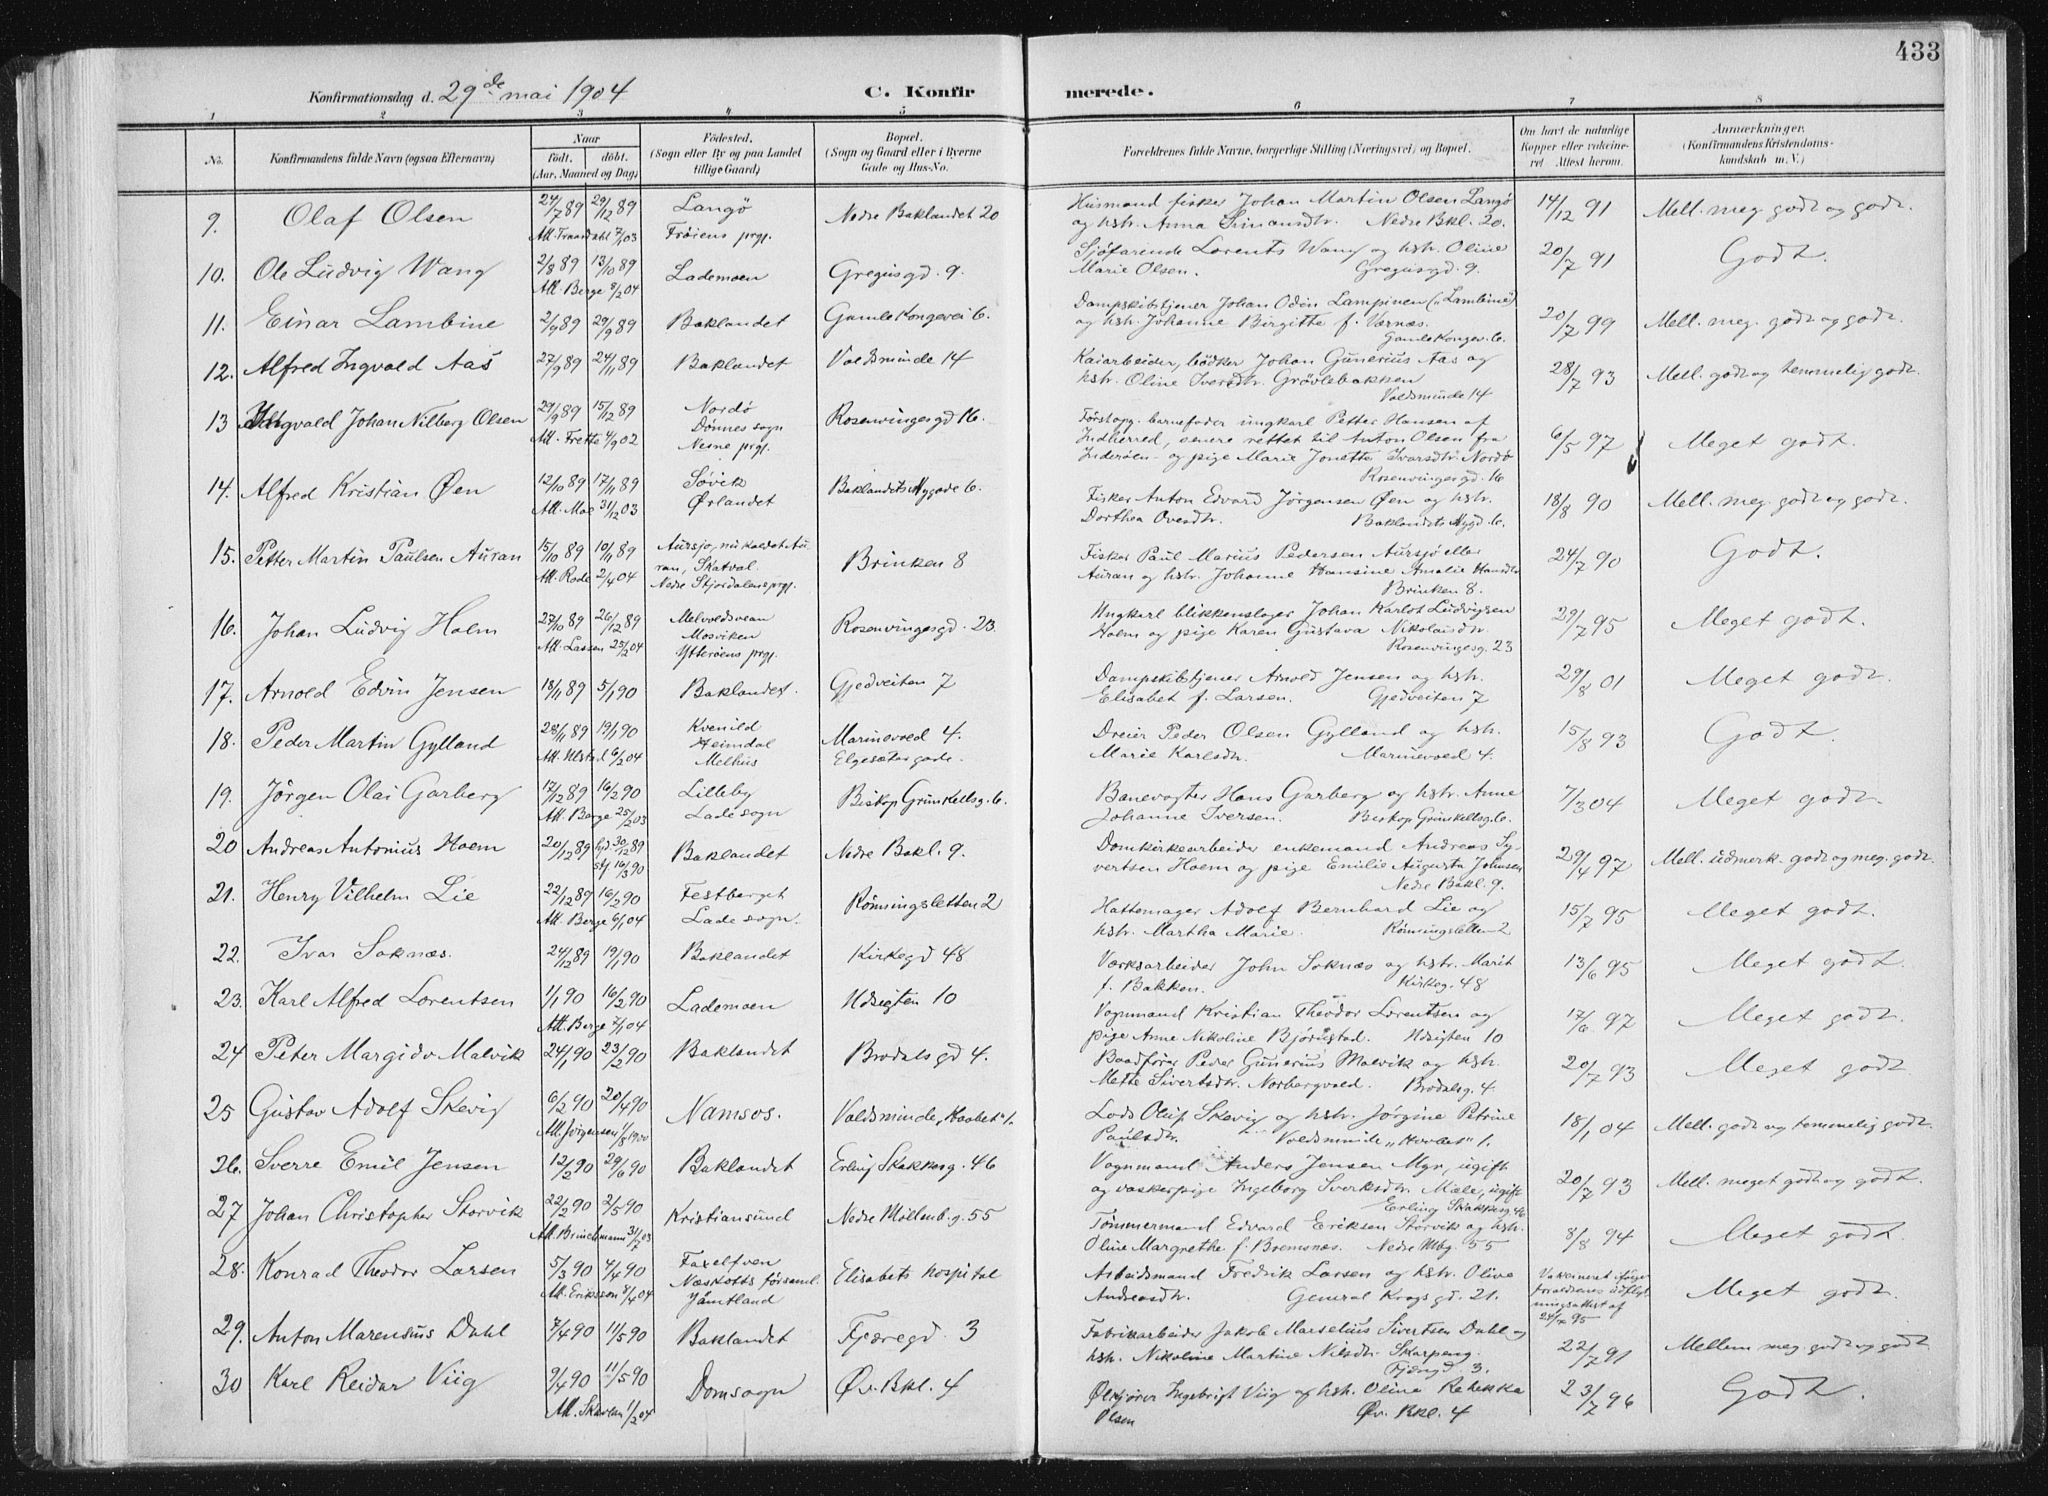 433
Konfirmationsdag d. 29de mai 1904
C. Konfirmerede.
1 2 3 4 5 6 7 8
No. Konfirmandens fulde Navn (ogsaa Efternavn)
Naar født. døbt. (Aar, Maaned og Dag)
Fødested. (Sogn eller By og paa Landet tillige Gaard)
Bopæl. (Sogn og Gaard eller i Byerne Gade og Hus-No.
Forældrenes fulde Navne, borgerlige Stilling (Næringsvei) og Bopæl.
Om havt de naturlige Kopper eller vakcineret Attest herom.
Anmærkninger. (Konfirmandens Kristendomskundskab m. V.)
9. Olaf Olsen 24/7 89 29/12 89 Langø Nedre Baklandet 20 Husmand fisker Johan Martin Olsen Langø 14/12 91 Mell. meg. godt og godt.
Att. Traandahl 7/1 03 Frøiens prgj. og hstr. Anna Simonsdtr. Nedre Bkl. 20.
10. Ole Ludvig Wang 2/8 89 13/10 89 Lademoen Gregusgd. 9. Sjøfarende Lorents Wang og hstr. Oline 20/7 91 Godt.
Att. Berge 8/2 04 Marie Olsen. Gregusgd. 9.
11. Einar Lambine 2/9 89 29/9 89 Baklandet Gamle Kongevei 6. Dampskibstjener Johan Odin Lampinen (: Lambine) 20/7 99 Mell. meg. godt og godt.
og hstr. Johanne Birgitte f. Værnes. Gamle Kongev. 6.
12. Alfred Ingvald Aas 27/9 89 24/11 89 Baklandet Voldsminde 14 Kaiarbeider, bødker Johan Gunerius Aas og 28/7 93 Mell. godt og temmelig godt.
hstr. Oline Iversdtr. Grøvlebakken
Voldsminde 14
13 Ingvald Johan Nilberg Olsen 29/9 89 15/12 89 Nordø Rosenvingesgd 16. Førstopg. barnefader ungkarl Petter Hansen af 6/5 97 Meget godt.
Att. Frette 4/9 02 Dønnes sogn Indherred, senere rettet til Anton Olsen fra
Nesne prgj. Inderøen - og pige Marie Jonette Ivarsdtr. Nordø
Rosenvingesgd. 16
14. Alfred Kristian Øen 12/10 89 17/11 89 Søvik Baklandets Nygade 6. Fisker Anton Edvard Jørgensen Øen og hstr. 18/8 90 Mell. meg. godt og godt.
Att. Moe 31/12 03 Ørlandet Dorthea Ovesdtr. Baklandets Nygd. 6.
15. Petter Martin Paulsen Auran 15/10 89 10/11 89 Aursjø, nu kaldet Au Brinken 8 Fisker Paul Marius Pedersen Aursjø eller 24/7 90 Godt.
Att. Rode 2/4 04 ran, Skatval. Auran og hstr. Johanne Hansine Amalie Hansdtr
Nedre Stjordalens prgj. Brinken 8.
16. Johan Ludvig Holm 27/10 89 26/12 89 Melvoldsvean Rosenvingesgd. 23. Ungkarl blikkenslager Johan Karlot Ludvigsen 29/7 95 Meget godt.
Att. Lassen 25/2 04 Mosviken Holm og pige Karen Gustava Nikolaisdtr.
Ytterøens prgj. Rosenvingesg. 23
17. Arnold Edvin Jensen 18/11 89 5/1 90 Baklandet. Gjedveiten 7 Dampskibstjener Arnold Jensen og hstr. 29/8 01 Meget godt.
Elisabet f. Larsen. Gjedveiten 7
18. Peder Martin Gylland 28/11 89 19/1 90 Kvenild Marinevold 4. Dreier Peder Olsen Gylland og hstr. 15/8 93 Godt.
Att. Ulstad 6/2 04 Heimdal Elgesætergade. Marie Karlsdtr. Marinevold 4.
Melhus
19. Jørgen Olai Garberg 17/12 89 16/2 90 Lilleby Biskop Grimkellsg. 6. Banevogter Hans Garberg og hstr. Anne 7/3 04 Meget godt.
Att. Berge 25/2 03 Lade sogn Johanne Iversen. Biskop Grimkellsg. 6.
20 Andreas Antonius Holm 20/12 89 hjd 30/12 89 Baklandet Nedre Bakl. 9. Domkirkearbeider enkemand Andreas Sy- 29/4 97 Mell. udmerk. godt og meg. godt.
stf 16/3 90 vertsen Holm og pige Emilie Augusta Johnsen
Nedre Bakl. 9.
21. Henry Vilhelm Lie 22/12 89 16/2 90 Festberget Rønningsletten 2 Hattemager Adolf Bernhard Lie og 15/7 95 Meget godt.
Att. Berge 6/1 04 Lade sogn. hstr. Martha Marie. Rønningsletten 2
22. Ivar Soknæs. 24/12 89 19/1 90 Baklandet Kirkegd 48 Verksarbeider John Soknæs og hstr. Marit 13/6 95 Meget godt.
f. Bakken. Kirkeg. 48
23. Karl Alfred Lorentsen 1/1 90 16/2 90 Lademoen Udsigten 10 Vognmand Kristian Theodor Lorentsen og 17/6 97 Meget godt.
Att. Berge 7/1 04 pige Anne Nikoline Bjørnstad. Udsigten 10
24 Peter Margido Malvik 24/1 90 23/2 90 Baklandet Brodalsgd 4. Baadfører Peder Gunerius Malvik og hstr. 20/7 93 Meget godt
Mette Sivertsdtr. Norbergvold. Brodalsg. 4
25 Gustav Adolf Skevig 6/2 90 20/4 90 Namsos. Voldsminde, "Haabet" 1. Lods Oluf Skevig og hstr. Jørgine Petrine 18/1 04 Mell. godt og temmelig godt.
Att. Jørgensen 1/8 1900 Paulsdtr. Voldsminde "Haabet" 1.
26. Sverre Emil Jensen 12/2 90 29/6 90 Baklandet Erling Skakkesg. 46 Vognmand Anders Jensen Myr, ugift 20/7 93 Mell. meget godt og godt.
og vaskerpige Ingeborg Sverksdtr. Mæle, ugift
Erling Skakkesg. 46
27 Johan Christopher Storvik 22/2 90 2/5 90 Kristiansund Nedre Møllenb. g. 55 Tømmermand Edvard Eriksen Storvik og hstr. 8/8 94 Meget godt.
Att. Brinchmann 31/7 03 Oline Margrethe f. Bremsnes. Nedre Mbg. 55
28. Konrad Theodor Larsen 5/3 90 4/4 90 Faxelfven Elisabets hospital Arbeidsmand Fredrik Larsen og hstr. Olive Vakcineret ifølge Meget godt.
Att. Eriksson 8/4 04 Næskotts församl. Andreasdtr. General Krogs gd. 21. foraldrenes udflyt
Jämtland ningsattest af
24/4 95
29. Anton Marensius Dahl 7/4 90 11/5 90 Baklandet Fjæregd. 3 Fabrikarbeider Jakob Marselius Sivertsen Dahl og 22/7 91 Mellem meg. godt og godt
hstr. Nikoline Martine Nilsdtr. Skarpeng.
Fjæregd. 3.
30 Karl Reidar Viig 9/4 90 11/5 90 Domsogn Øv. Bkl. 4 Ølkjører Ingebrigt Viig og hstr. Oline Rebekka 23/7 96 Godt.
Att. Skavlan 1/2 04 Olsen Øv. Bkl. 4